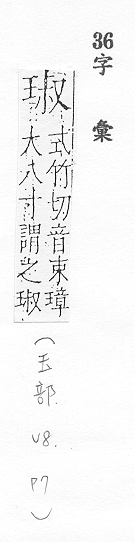 36字彙
琡
式竹切音束璋
大八寸謂之琡
(玉部 V8. P7)